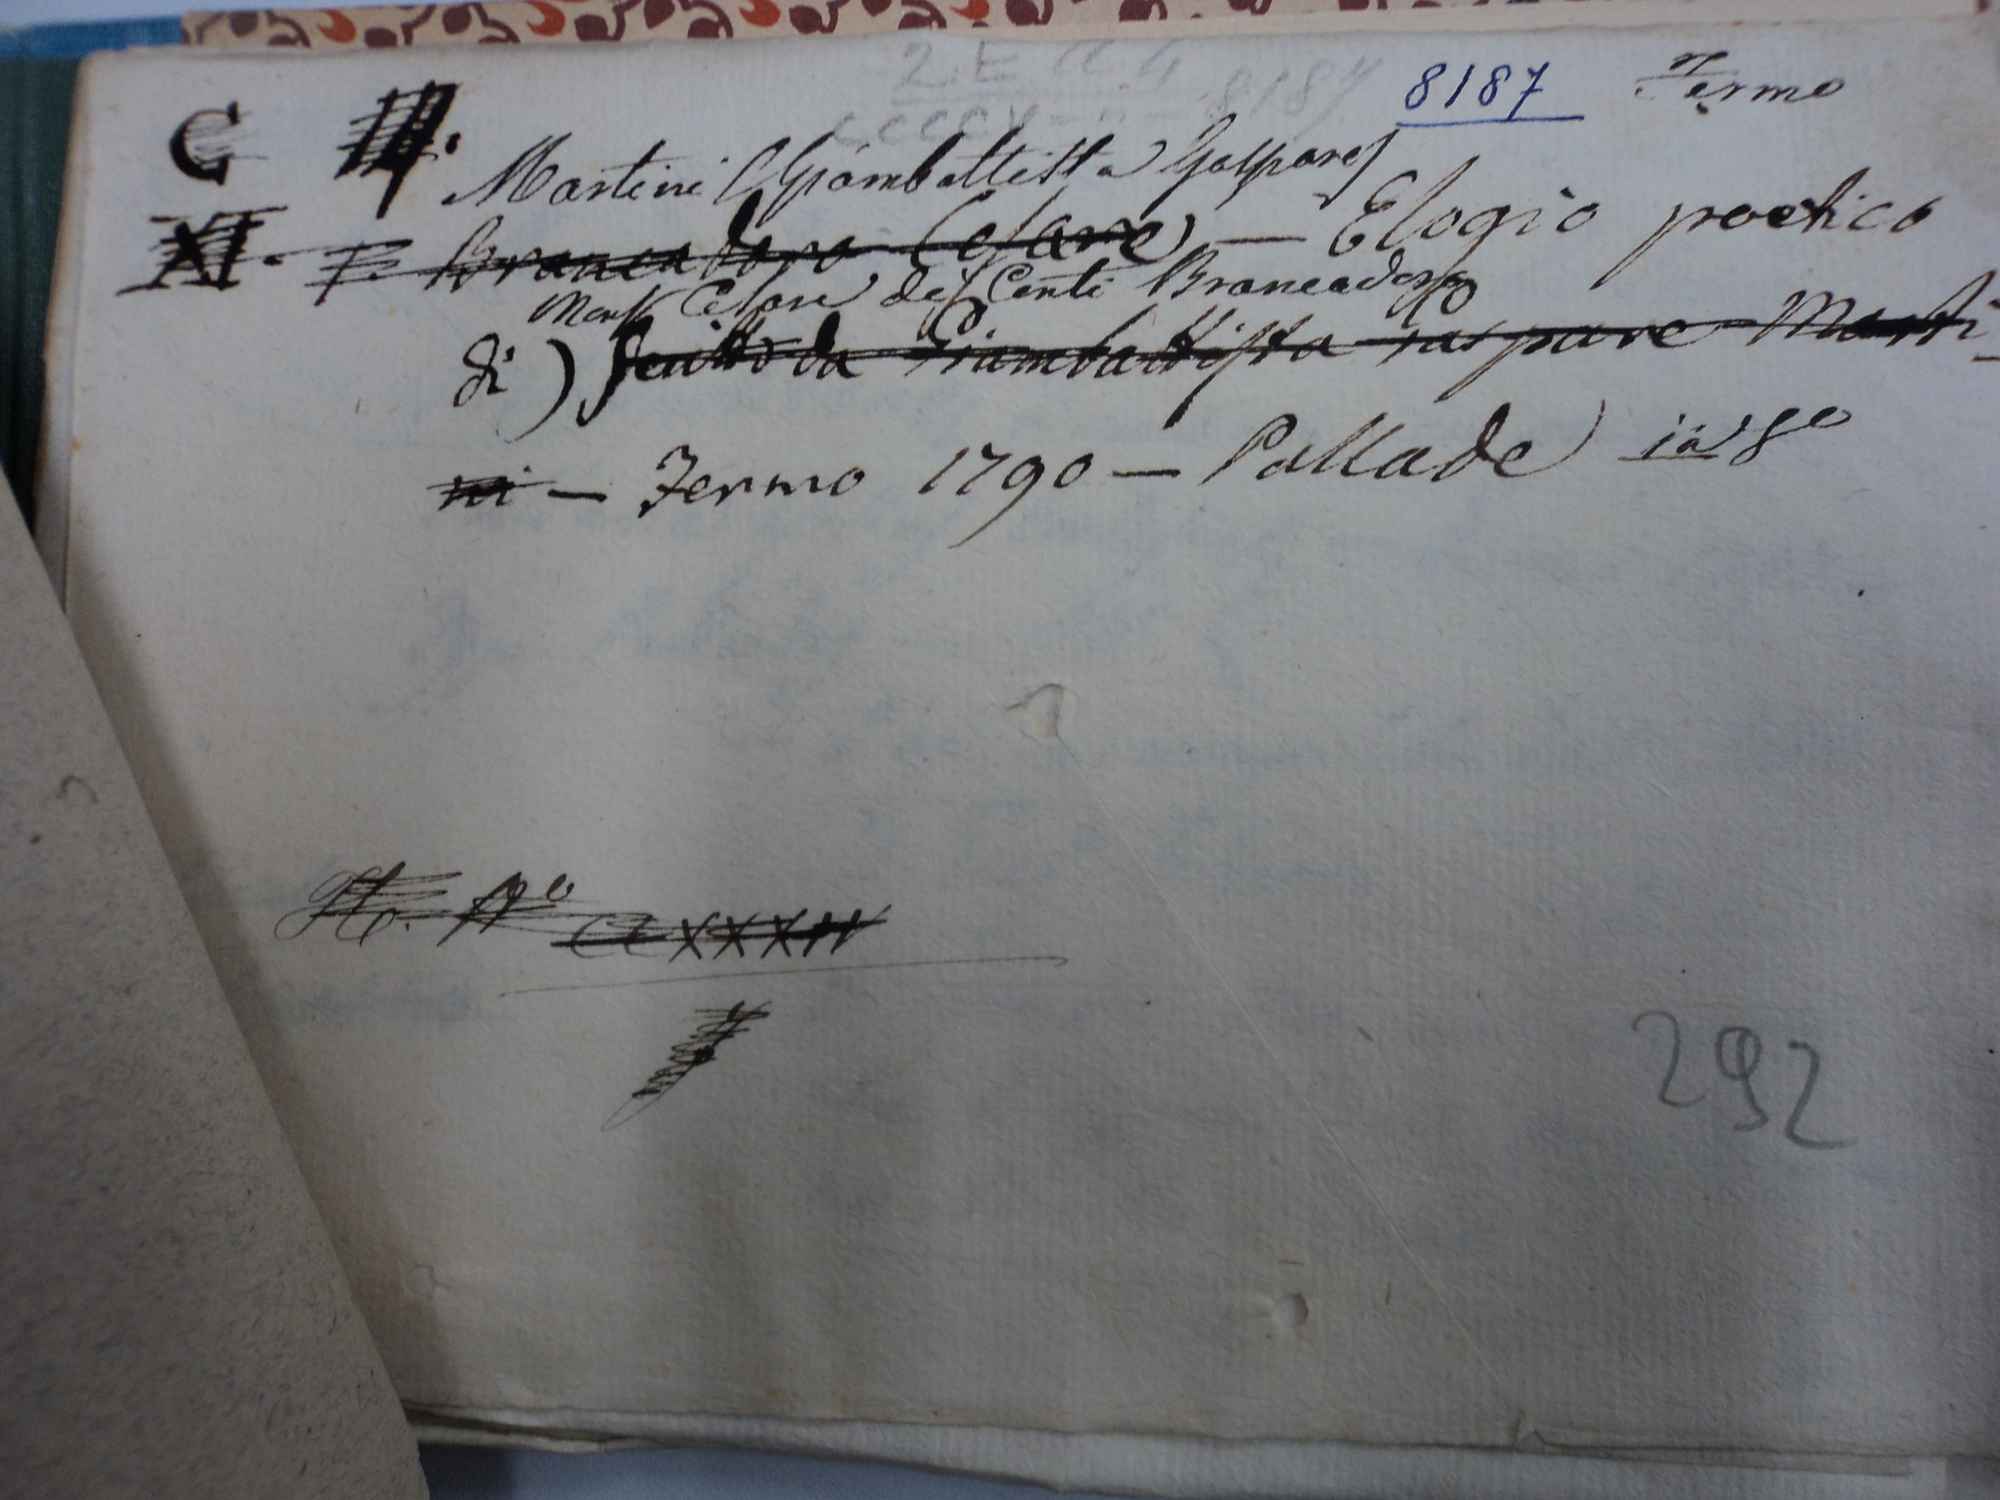 8187 Fermo
C
Martini (Giambattista Gaspare)
XI. Brancadoro Cesare) — Elogio poetico
Cesare de' Conti Brancadoro
di) Scritto da Giambattista Gaspare Marti-
ni — Fermo 1790 — Pallade) in 8º
292